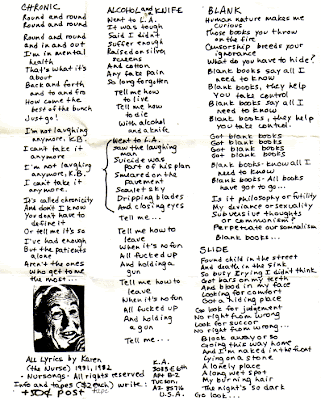 CHRONIC
Round and round
Round and round
Round and round
and in and out
I'm in mental
health
That's what it's
about
Back and forth
and to and fro
How come the
best of the bunch
Just go!
I'm not laughing
anymore, K.B.
I can't take it
anymore
I'm not laughing
anymore, K.B.
I can't take it
anymore.
It's called chronicity
And don't I know
You don't have to
define it
Or tell me it's so
I've had enough
But the patients
alone
Aren't the ones
who get to me
the most...
ALCOHOL and KNIFE
Went to L.A.
It was tough
Said I didn't
suffer enough
Raised on silver
screens
And cotton
Any fake pain
So long forgotten
Tell me how
to live
Tell me how
to die
With alcohol
and a knife
Went to L.A.
Saw the laughing
man
Suicide was
part of his plan
Smeared on the
pavement
Scarlet sky
Dripping blades
And closing eyes
Tell me...
Tell me how to
leave
When it's no fun
All fucked up
And holding a
gun
Tell me how to
leave
When it's no fun
All fucked up
And holding
a gun
Tell me...
BLANK
Human nature makes me
curious
Those books you throw
on the fire
Censorship breeds your
ignorance
What do you have to hide?
Blank books say all I
need to know
Blank books, they help
you take control
Blank books say all I
need to know
Blank books, they help
you take control.
Got blank books
Got blank books
Got blank books
Got blank books
Blank books know all I
need to know
Blank books - All books
have got to go...
Is it philosophy or futility
My deviance or sexuality
Subversive thoughts
or communism?
Perpetuate our
Blank books...
SLIDE
Found child in the street
And death in the sink
So busy trying I didn't think
Got bars on my teeth
And blood in my face
Looking for comfort
Got a hiding place
Go look for judgement
No right from wrong
Look for succor
No right from wrong...
Block away or so
Going this way home
And I'm naked in the
Lying on a stone
A lonely place
A long wet spot
My burning hair
The night's so dark
Go look...
All Lyrics by Karen
(the Nurse) 1981, 1982
Nursongs - All rights reserved
Info and tapes ($2 each) write:
+ 50¢ post
K.A.
3025 E 6th
Apt B-2
Tucson,
AZ 85716
U.S.A.